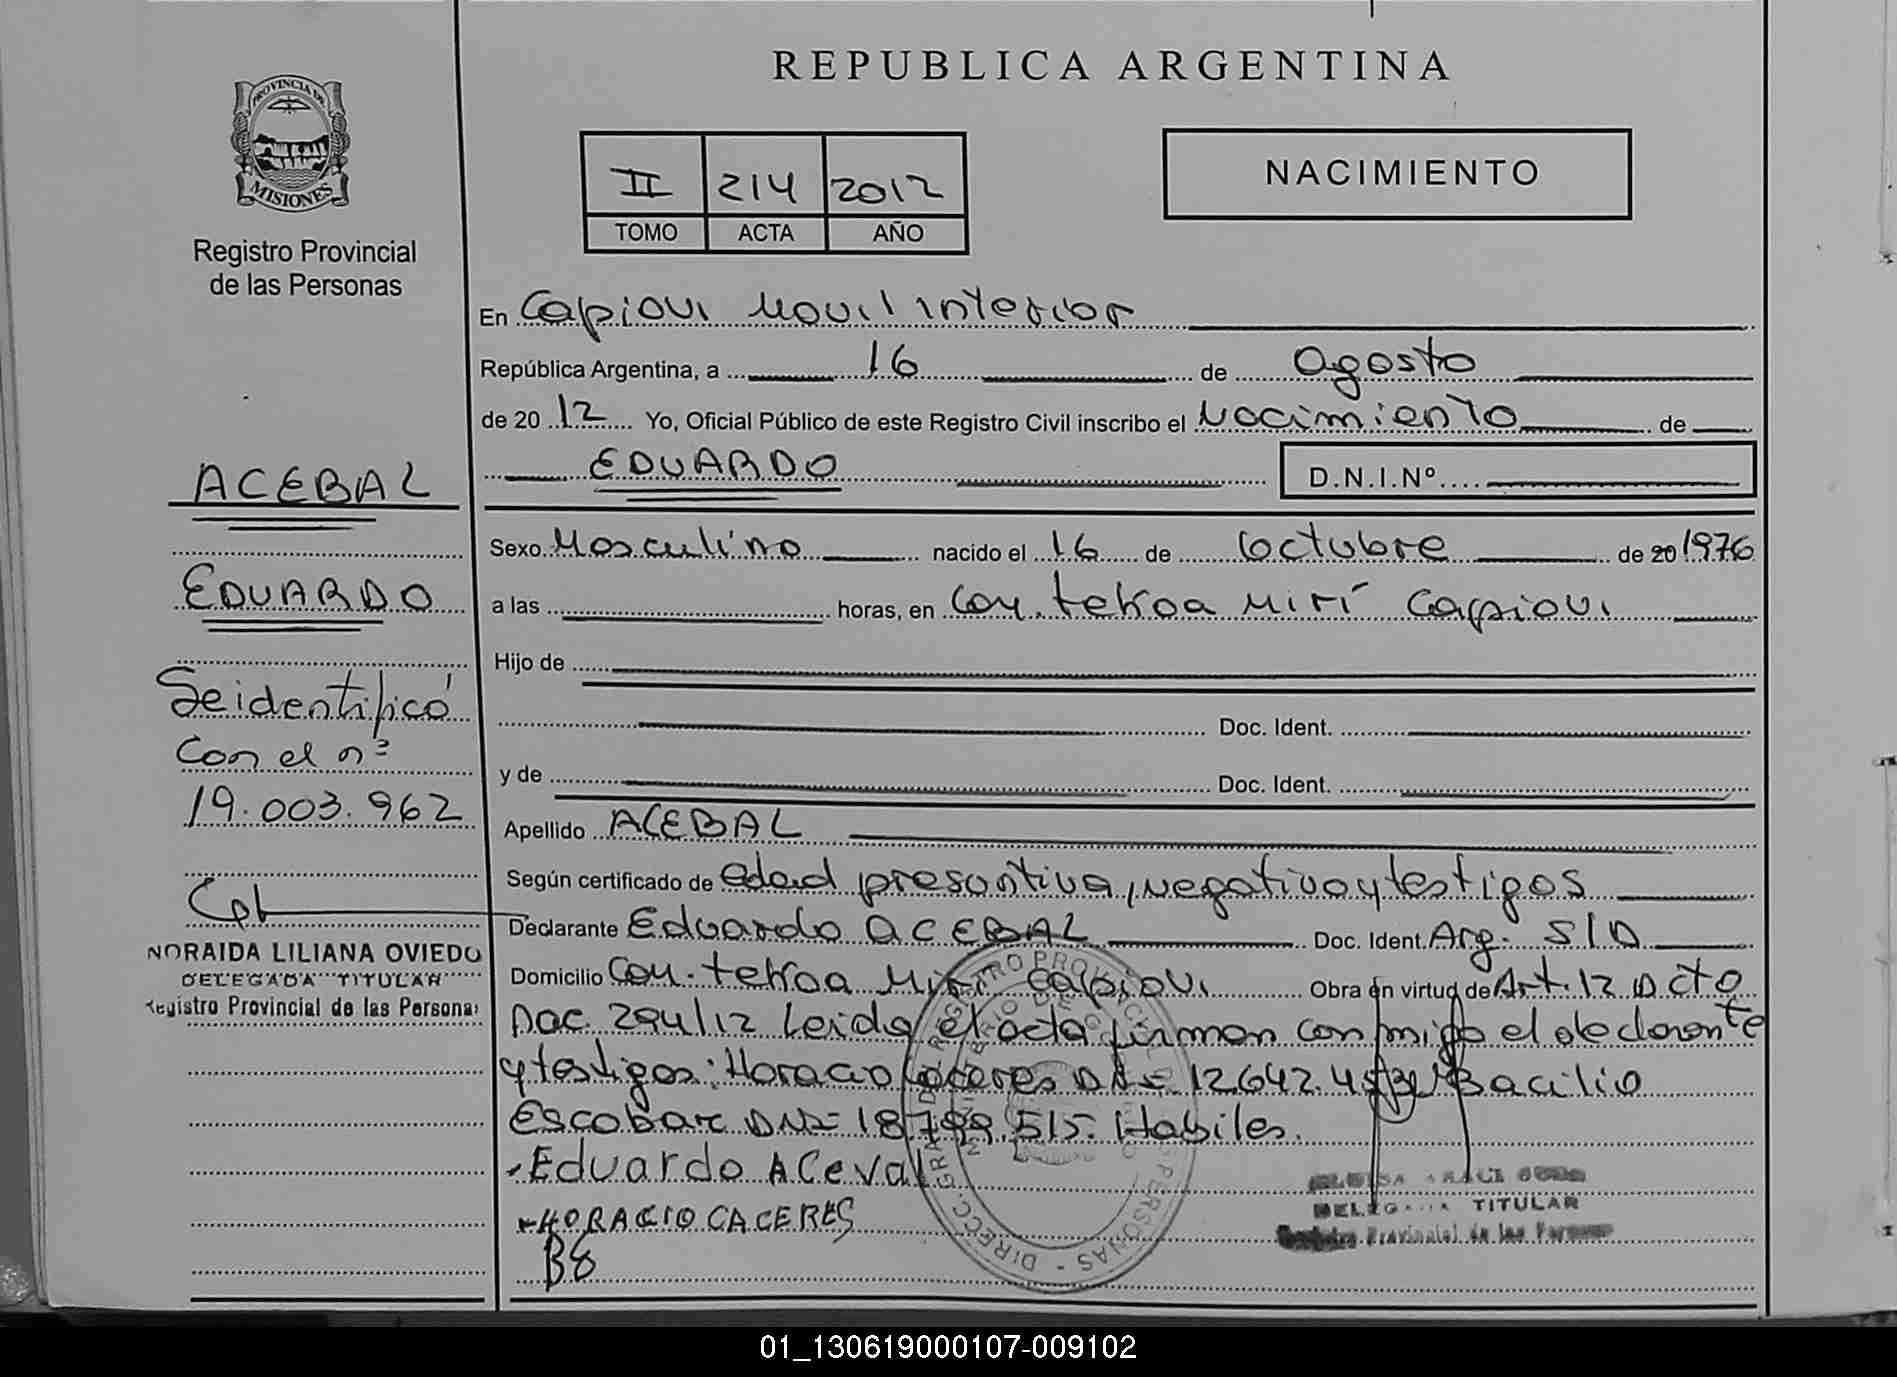 REPUBLICA ARGENTINA
PROVINCIA DE
MISIONES
Registro Provincial
de las Personas
II 214 2012
TOMO ACTA AÑO
NACIMIENTO
En Capiovi Movil interior
República Argentina, a 16 de agosto
de 2012 Yo, Oficial Público de este Registro Civil inscribo el Nacimiento de
EDUARDO D.N.I.Nº
ACEBAL
EDUARDO
Se identificó
con el nº
19.003.962
NORAIDA LILIANA OVIEDO
DELEGADA TITULAR
Registro Provincial de las Personas
Sexo Masculino nacido el 16 de octubre de 20 1976
a las horas, en Com. tekoa Mirí Capiovi
Hijo de
Doc. Ident.
y de Doc. Ident.
Apellido ACEBAL
Según certificado de edad presuntiva, negativo y testigos
Declarante Eduardo ACEBAL Doc. Ident. Arg. S/D
Domicilio Com. tekoa Mirí Capiovi Obra en virtud de Art. 12 Dcto
Nac. 294/12 Leida el acta firman conmigo el declarante
y testigos: Horacio Caceres DNI 12.642.4 y Bacilio
Escobar DNI 18.799.515. Habiles.
Eduardo ACeVal
HORACIO CACERES
BE
DELEGADA TITULAR
Registro Provincial de las Personas
01_130619000107-009102